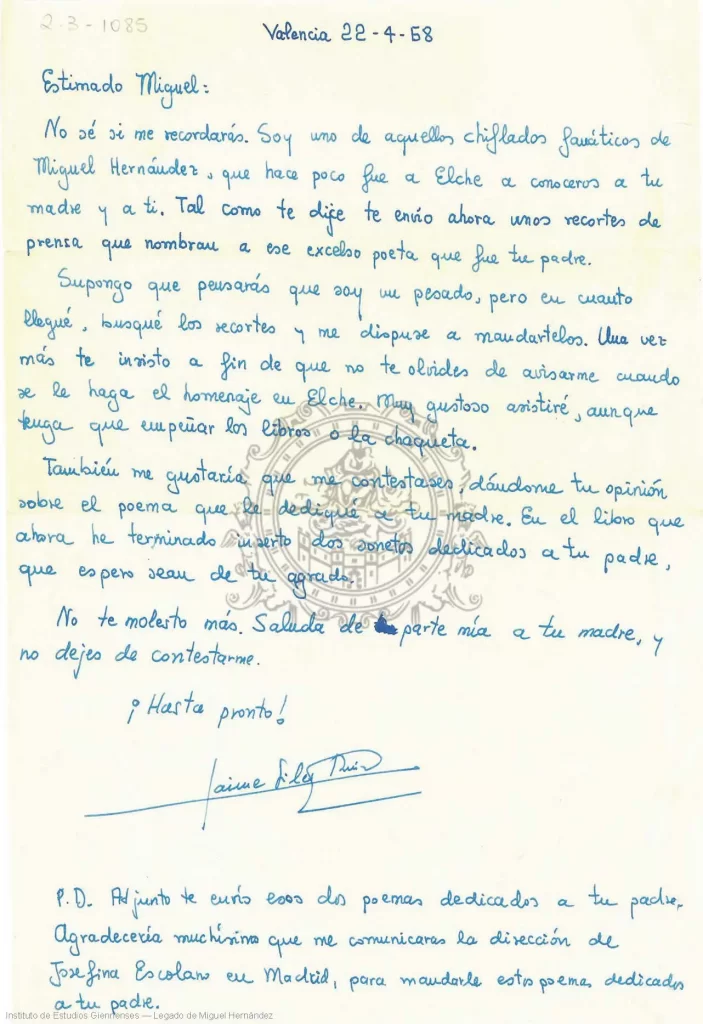 2-3-1085
Valencia 22-4-68
Estimado Miguel:
No sé si me recordarás. Soy uno de aquellos chiflados fanáticos de
Miguel Hernández, que hace poco fue a Elche a conoceros a tu
madre y a ti. Tal como te dije te envío ahora unos recortes de
prensa que nombran a ese excelso poeta que fue tu padre.
Supongo que pensarás que soy un pesado, pero en cuanto
llegué, busqué los recortes y me dispuse a mandartelos. Una vez
más te insisto a fin de que no te olvides de avisarme cuando
se le haga el homenaje en Elche. Muy gustoso asistiré, aunque
tenga que empeñar los libros o la chaqueta.
También me gustaría que me contestases, dándome tu opinión
sobre el poema que le dediqué a tu madre. En el libro que
ahora he terminado inserto dos sonetos dedicados a tu padre,
que espero sean de tu agrado.
No te molesto más. Saluda de parte mía a tu madre, y
no dejes de contestarme.
¡Hasta pronto!
Jaime Siles Ruiz
P.D. Adjunto te envío esos dos poemas dedicados a tu padre.
Agradecería muchísimo que me comunicaras la dirección de
Josefina Escolano en Madrid, para mandarle estos poemas dedicados
a tu padre.
Instituto de Estudios Giennenses — Legado de Miguel Hernández